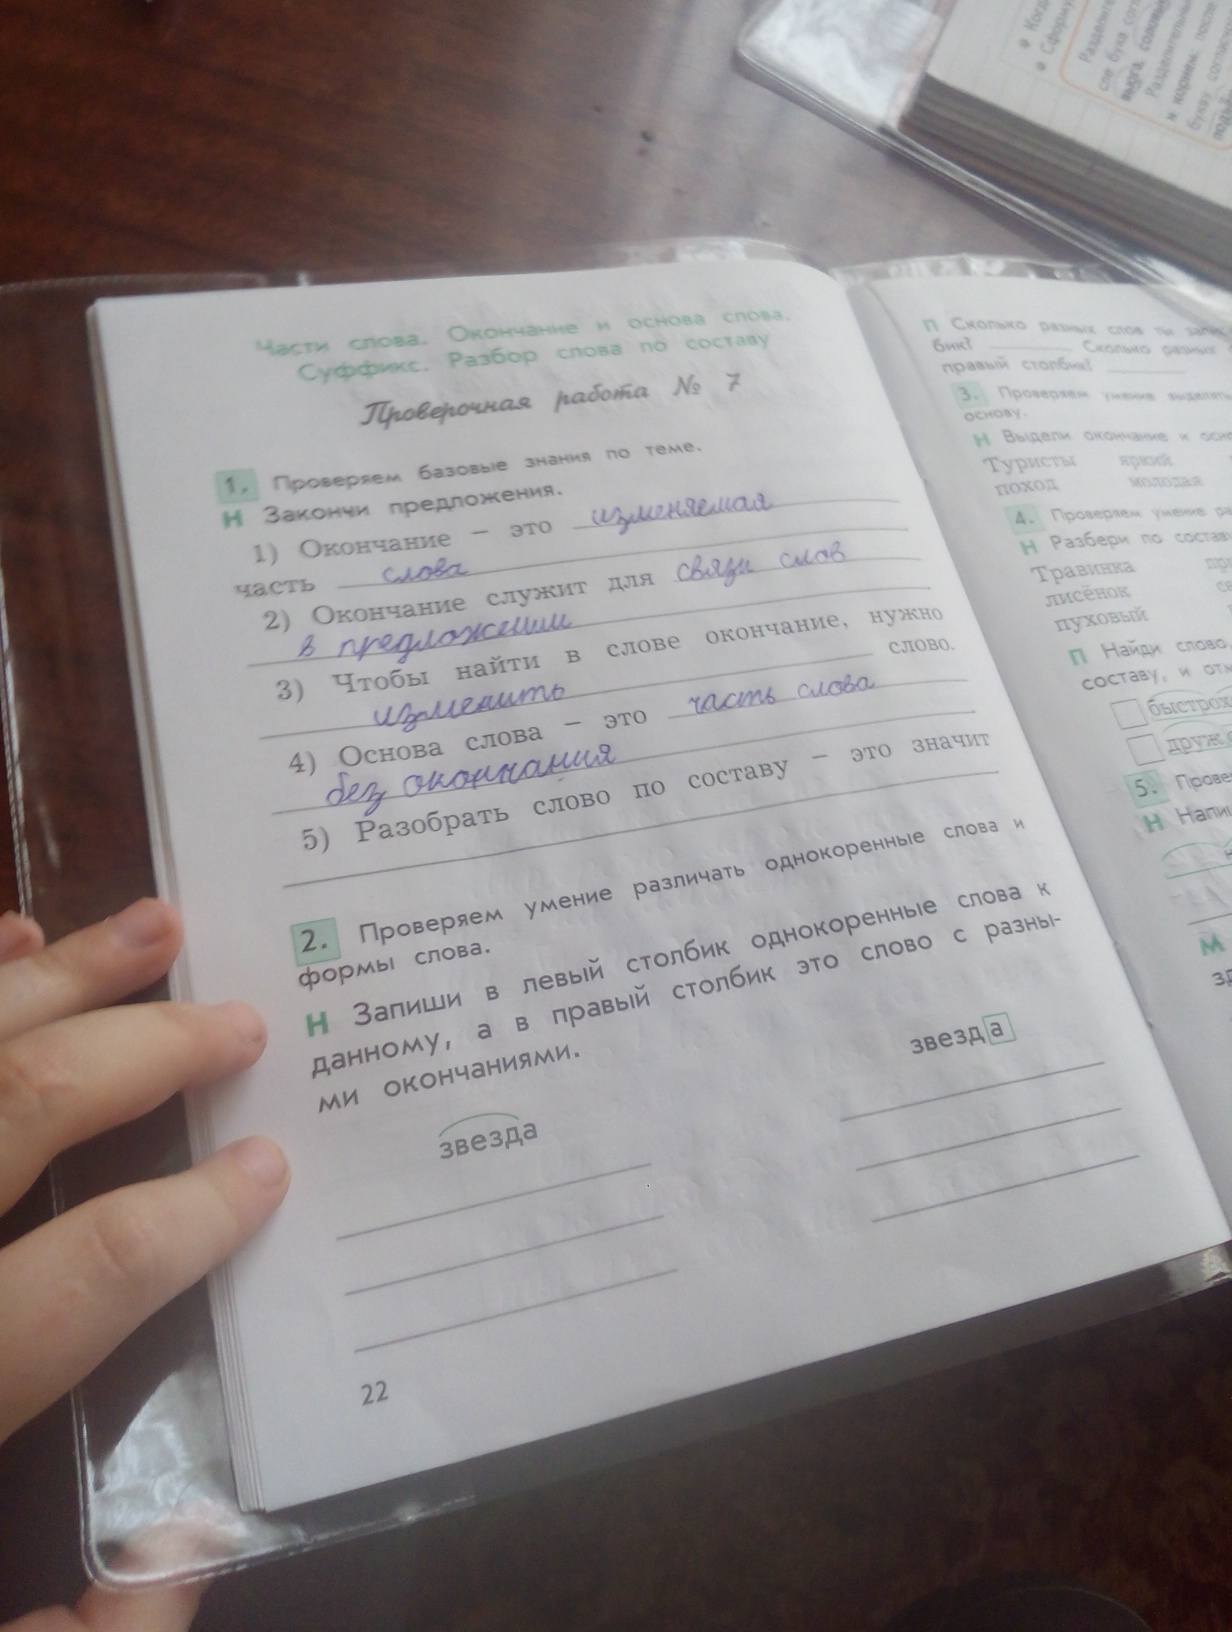 Части слова. Окончание и основа слова.
Суффикс. Разбор слова по составу
Проверочная работа № 7
1. Проверяем базовые знания по теме.
Н Закончи предложения.
1) Окончание – это изменяемая
часть слова
2) Окончание служит для связи слов
в предложении
3) Чтобы найти в слове окончание, нужно
изменить слово.
4) Основа слова – это часть слова
без окончания
5) Разобрать слово по составу – это значит
2. Проверяем умение различать однокоренные слова и
формы слова.
Н Запиши в левый столбик однокоренные слова к
данному, а в правый столбик это слово с разны-
ми окончаниями.
звезда
звезда
22
П Сколько разных слов ты
бик? Сколько разных
правый столбик?
3. Проверяем умение
основу.
Н Выдели окончание и
Туристы яркий
поход молодая
4. Проверяем умение
Н Разбери по
Травинка
лисёнок
пуховый
П Найди слово,
составу, и
5.
Н
М
Разделительный
н. корнем. после